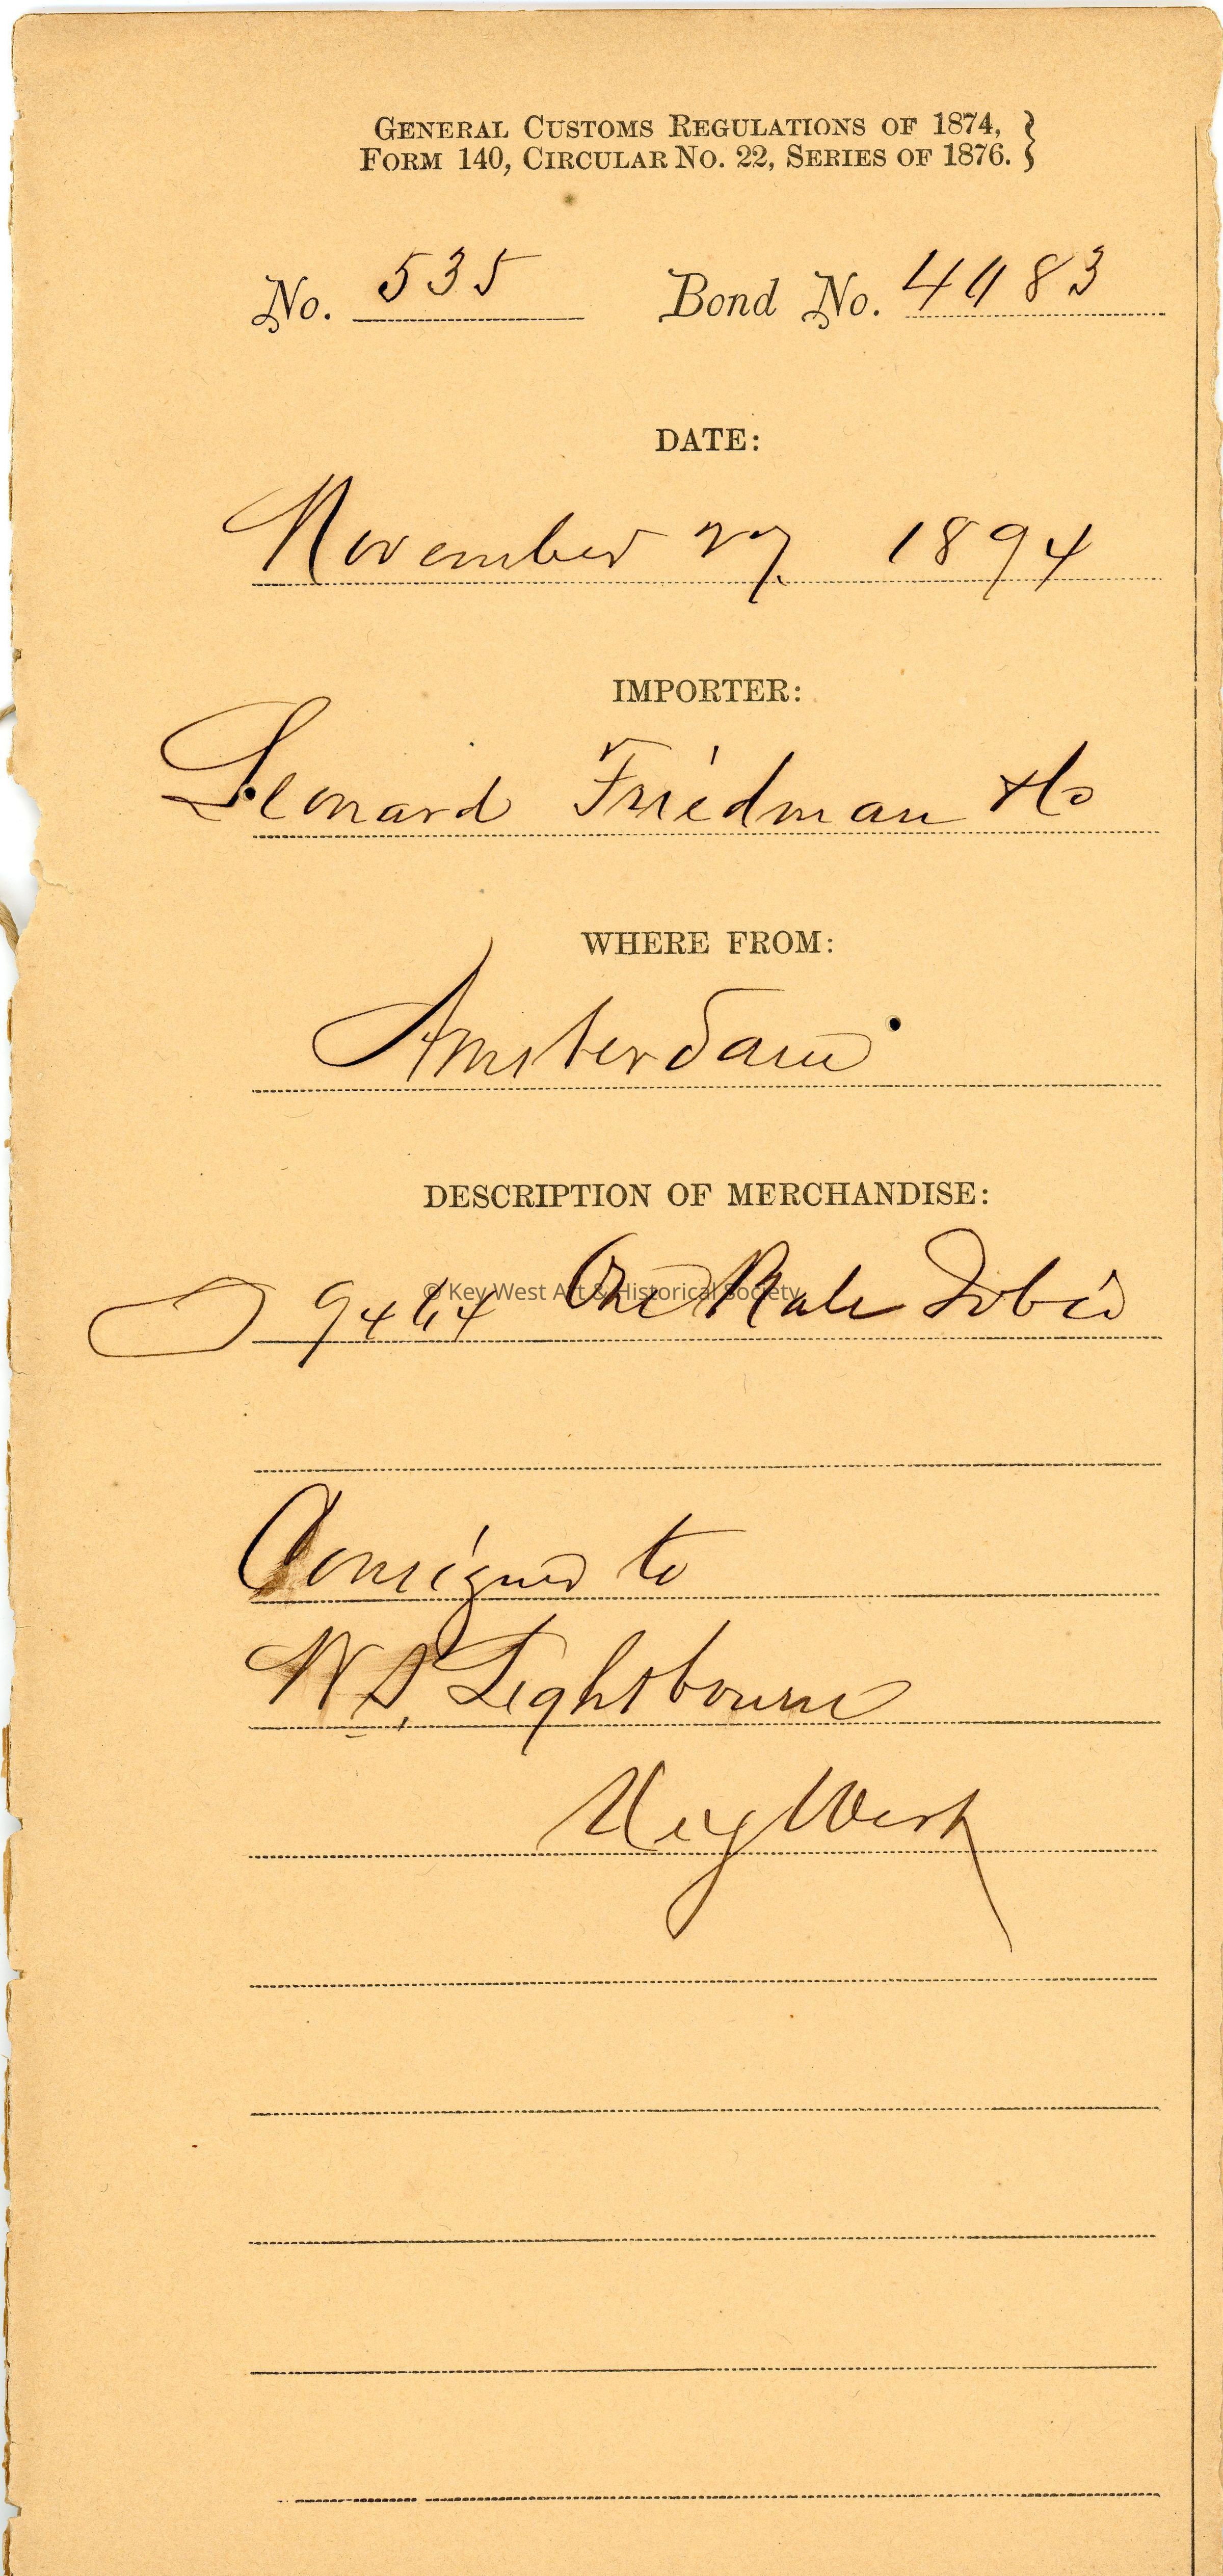 GENERAL CUSTOMS REGULATIONS OF 1874, }
FORM 140, CIRCULAR NO. 22, SERIES OF 1876. }
No. 535 Bond No. 4483
DATE:
November 27. 1894
IMPORTER:
Leonard Friedman & Co
WHERE FROM:
Amsterdam
DESCRIPTION OF MERCHANDISE:
One Bale Tobco
© Key West Art & Historical Society
Consigned to
W. S. Lightbourn
Key West